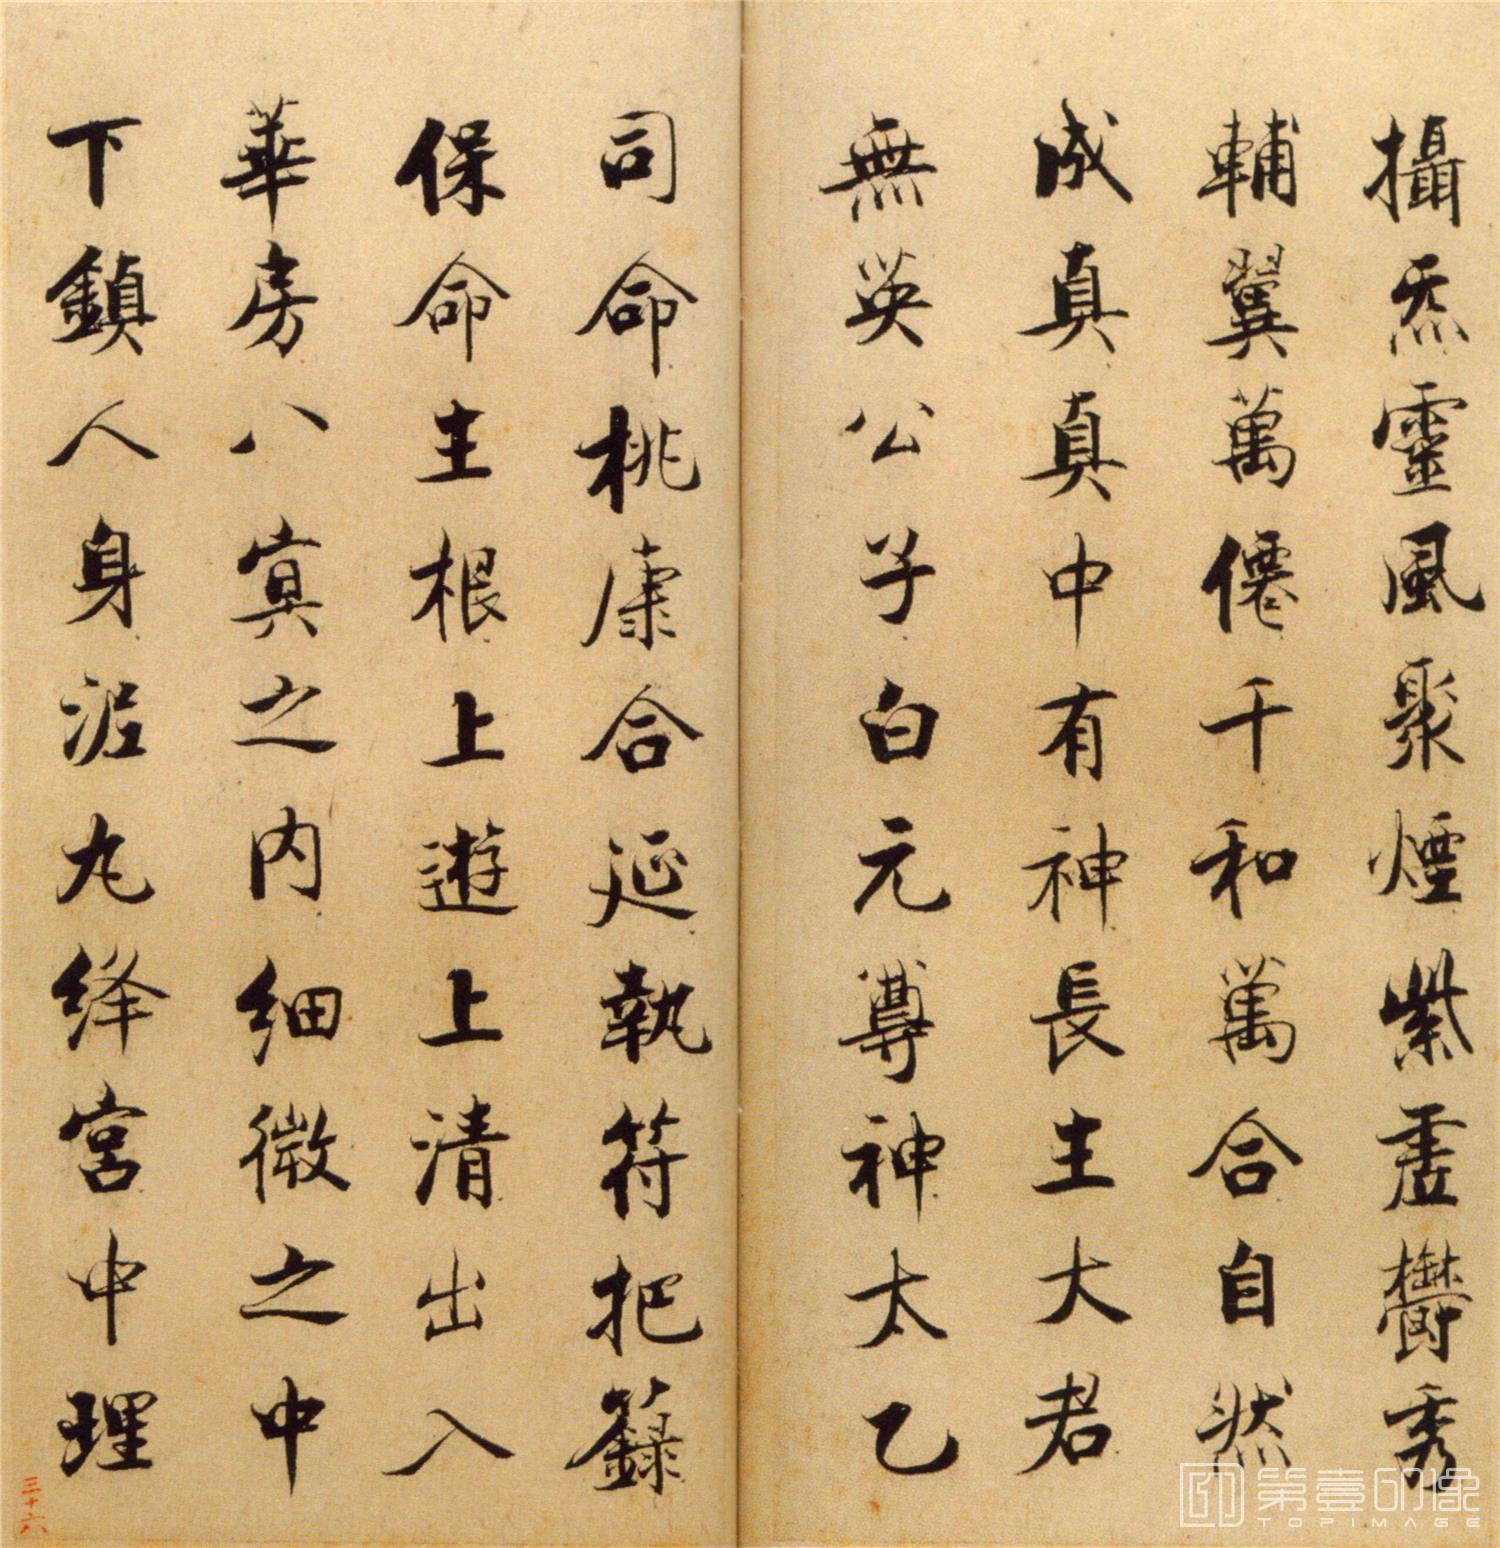 攝炁靈風聚煙紫虛鬱秀
輔翼萬僊千和萬合自然
成真真中有神長主大君
無英公子白元尊神太乙
司命桃康合延執符把籙
保命主根上遊上清出入
華房八冥之內細微之中
下鎮人身泥丸絳宮中理
三十六
第壹印像
TOPIMAGE